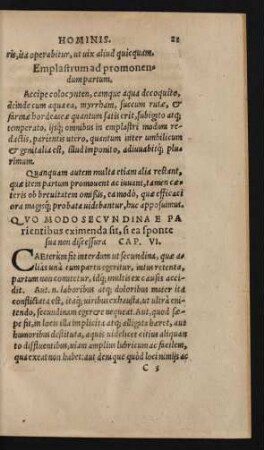 HOMINIS. 21
rit, ita operabitur, ut uix aliud quicquam.
Emplastrum ad promouen-
dum partum.
Accipe colocynten, eamque aqua decoquito,
deinde cum aqua ea, myrrham, succum rutæ, &
farinæ hordeaceæ quantum satis erit, subigito atq;
temperato, ijsq; omnibus in emplastri modum re-
dactis, parientis utero, quantum inter umbilicum
& genitalia est, illud imponito, adiuuabitq; plu-
rimum.
Quanquam autem multa etiam alia restant,
quæ item partum promouent ac iuuant, tamen cæ-
teris ob breuitatem omissis, ea modò, quæ efficaci
ora magisq; probata uidebantur, huc apposuimus.
QVO MODO SECVNDINA E PA
rientibus eximenda sit, si ea sponte
sua non discessura CAP. VI.
CAEterum fit interdum ut secundina, quæ a-
lias unà cum partu egreditur, intus retenta,
partum non comitetur, idq; multis ex causis acci-
dit. Aut. n. laboribus atq; doloribus mater ita
conflictata est, itaq; uiribus exhausta, ut ultrà eni-
tendo, secundinam egerere nequeat. Aut, quod sæ-
pe fit, in locis illa implicita atq; alligata hæret, aut
humoribus destituta, aquis uidelicet citius aliquan-
to diffluentibus, uiam amplius lubricam ac facilem,
qua exeat non habet: aut denique quòd loci nimijs ac
C 5